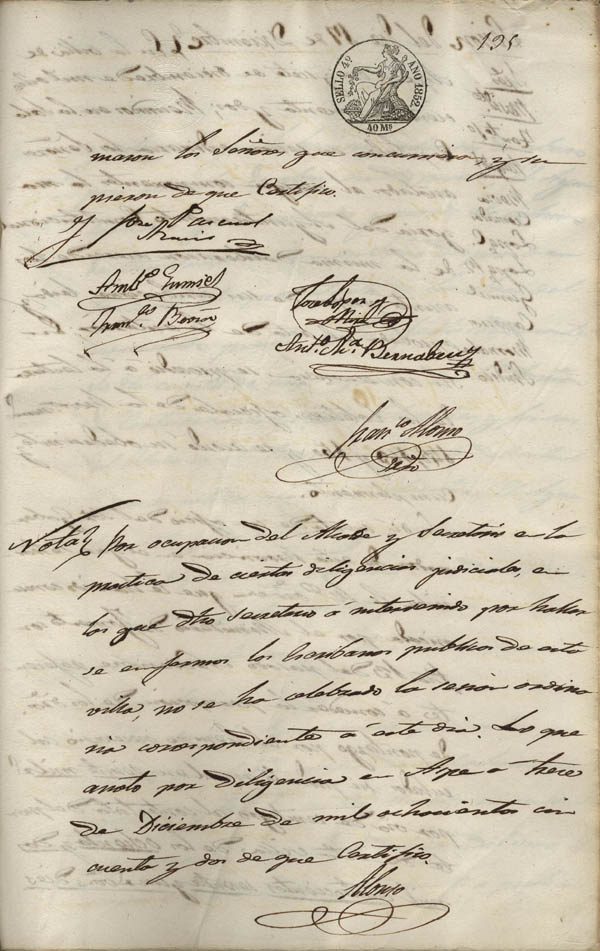 195
SELLO 4º AÑO 1852.
40 Ms
maron los Señores que concurrieron, y su
pieron de que Certifico.
José Pascual
Ambº Gumiel
Franco Beren
Ant.º M.ª Bernabeu
Franco Alonso
Srio
Nota Por ocupacion del Alcalde y Secretario en la
practica de ciertas diligencias judiciales, en
las que dho secretario á intervenido por hallar
se enfermos los Escribanos publicos de esta
villa, no se ha celebrado la sesion ordina
ria correspondiente á este dia. Lo que
anoto por diligencia en Aspe á trece
de Diciembre de mil ochocientos cin
cuenta y dos de que Certifico.
Alonso